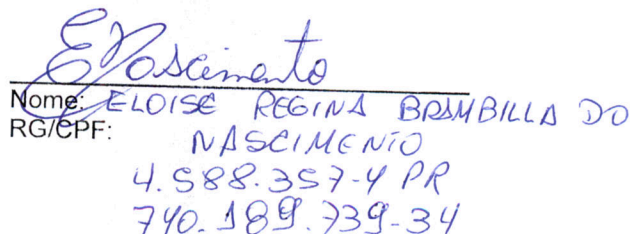 ENascimento
Nome: ELOISE REGINA BRAMBILLA DO
RG/CPF: NASCIMENTO
4.588.357-4 PR
740.189.739-34